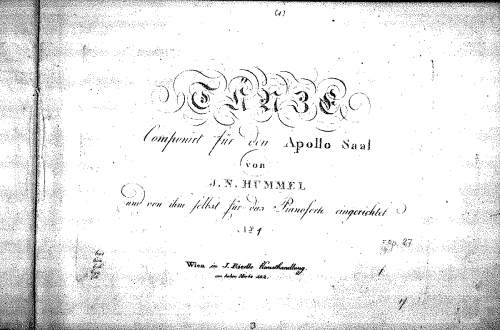 (1)
TÄNZE
Componirt für den Apollo Saal
von
J. N. HUMMEL
und von ihm selbst für das Pianoforte eingerichtet
No 1
op. 27
Wien in J. Riedls Kunsthandlung.
am hohen Markt